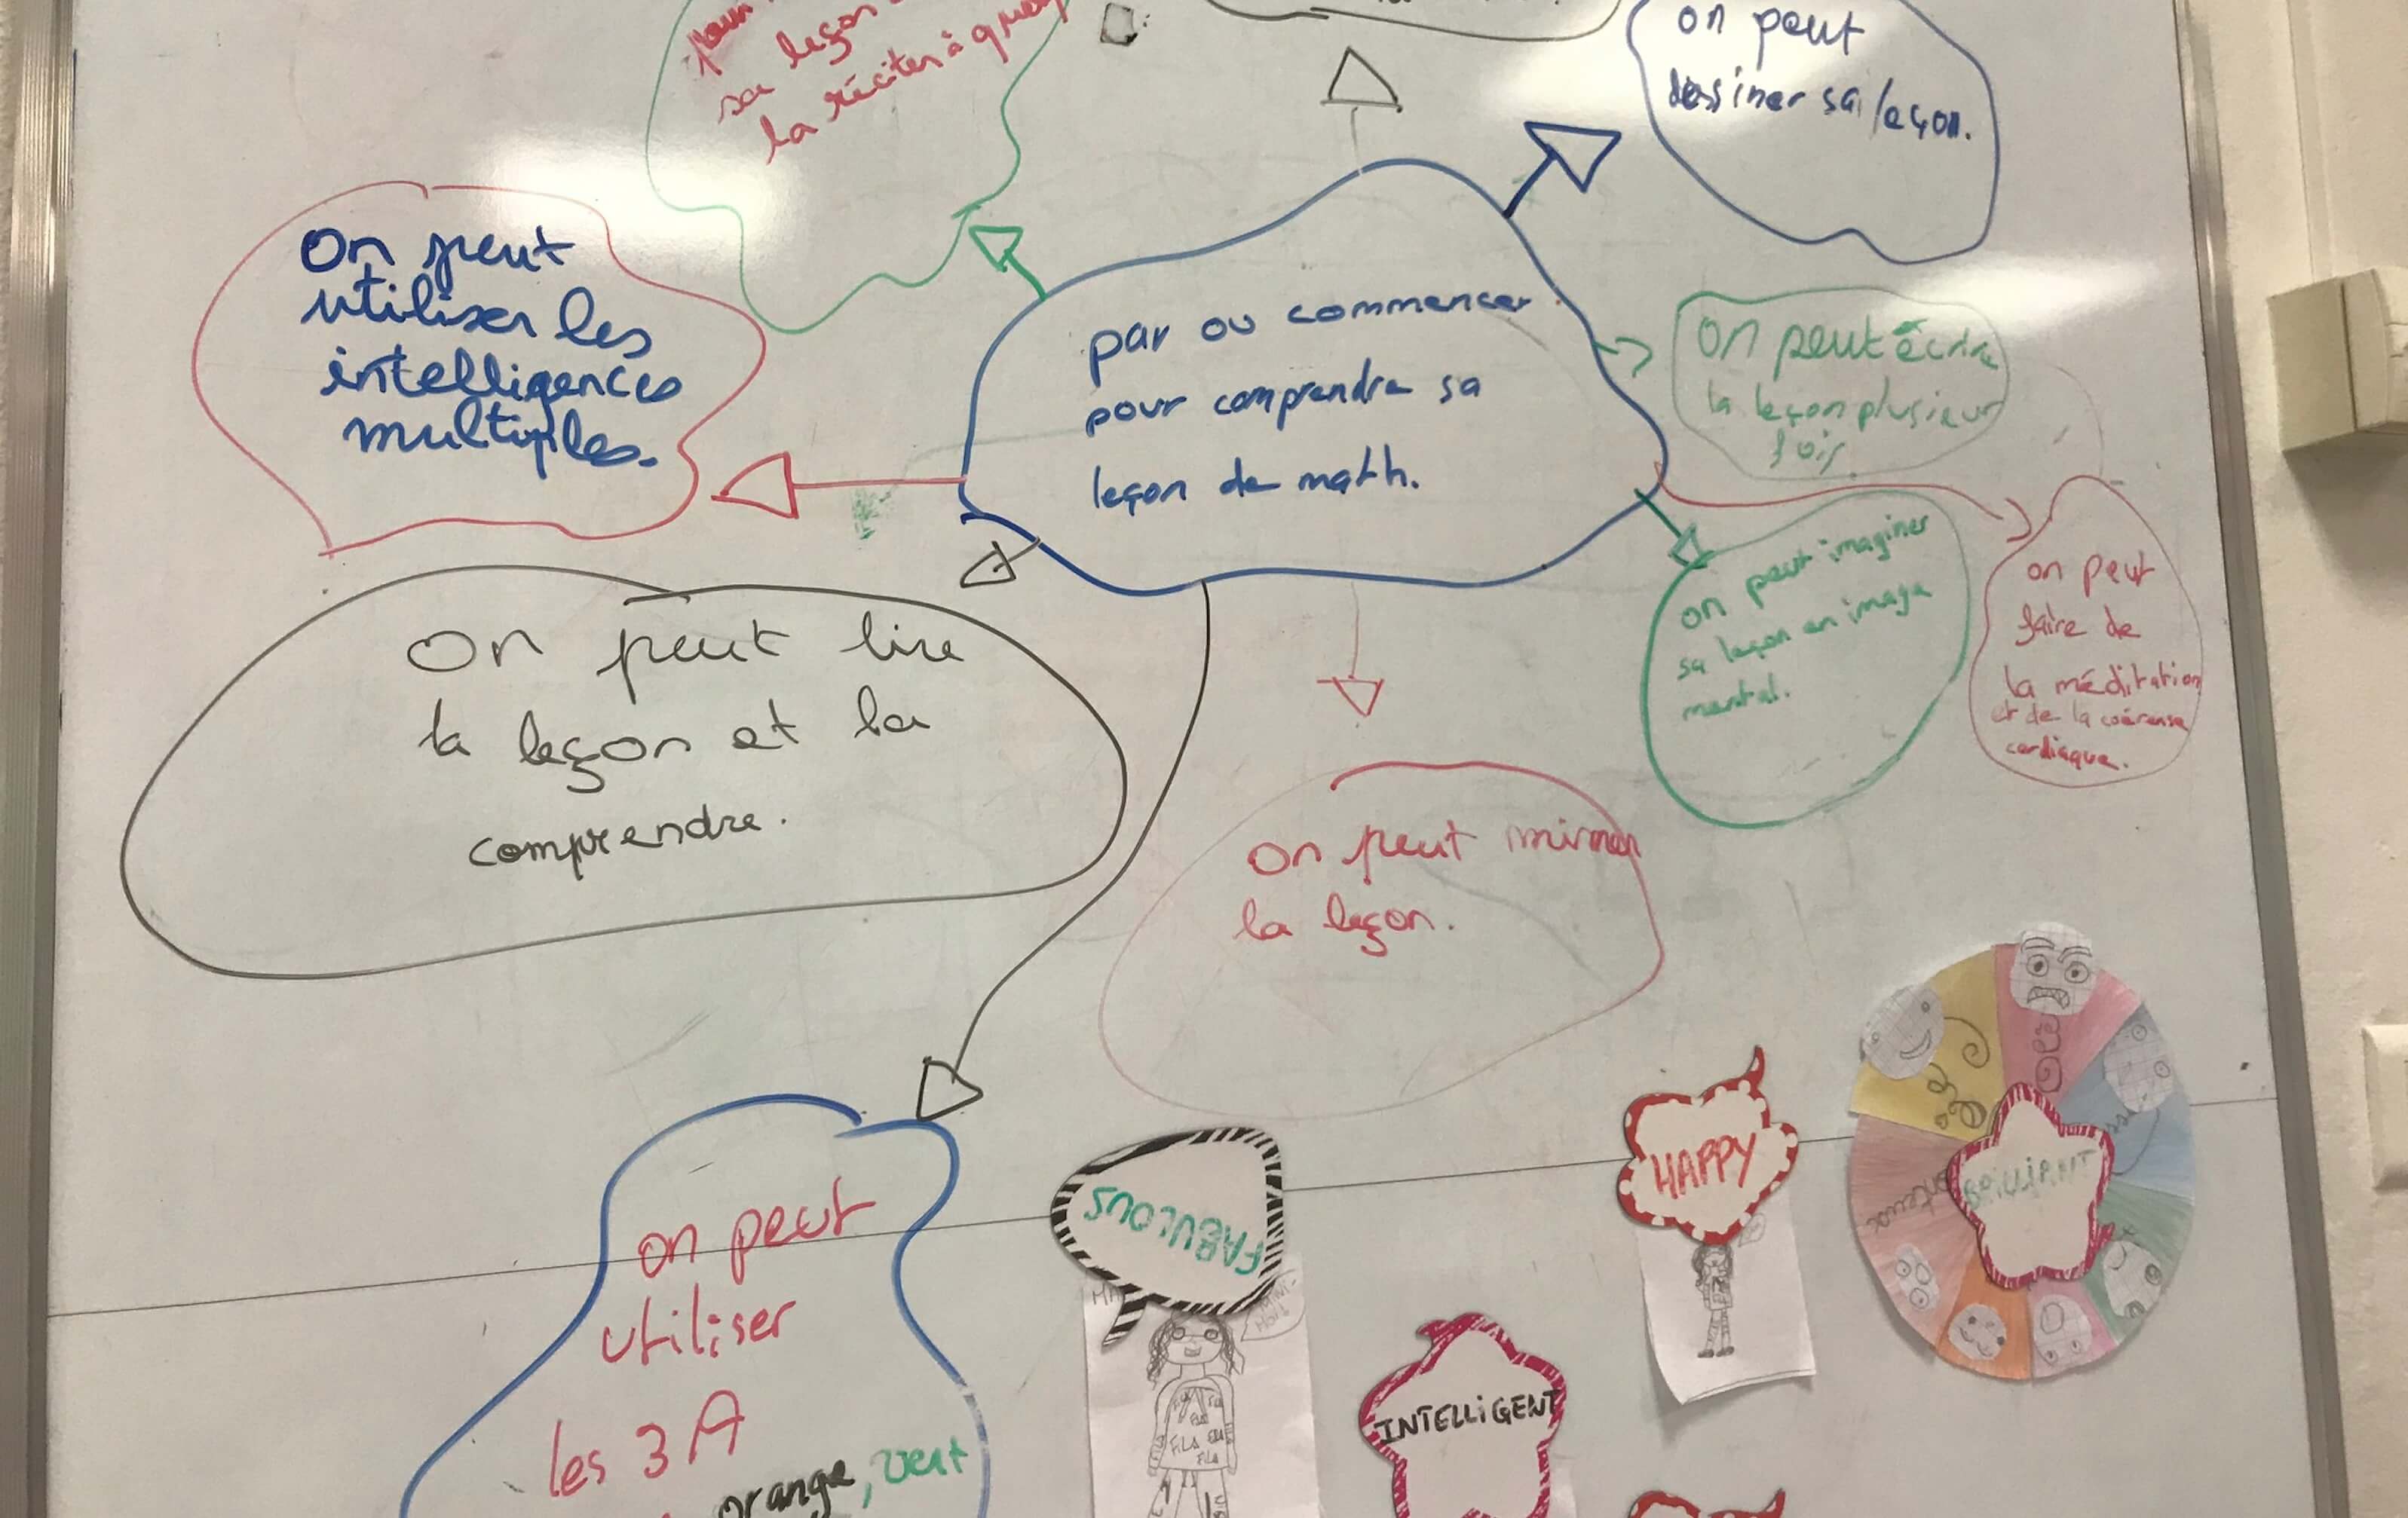 sa leçon
la réciter à
on peut
dessiner sa leçon.
On peut
utiliser les
intelligences
multiples.
par ou commencer
pour comprendre sa
leçon de math.
on peut écrire
la leçon plusieur
fois.
on peut imaginer
sa leçon en image
mental.
on peut
faire de
la méditation
et de la coérense
cardiaque.
On peut lire
la leçon et la
comprendre.
On peut mimer
la leçon.
on peut
utiliser
les 3 A
orange, vert
FABULOUS
HAPPY
INTELLIGENT
FILA
FILA